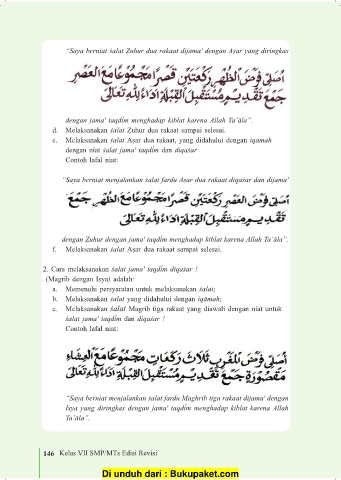 “Saya berniat śalat Zuhur dua rakaat dijama’ dengan Aṣar yang diringkas
اُصَلِّى فَرْضَ الظُّهْرِ رَكْعَتَيْنِ قَصْرًا مَجْمُوْعًا مَعَ الْعَصْرِ
جَمْعَ تَقْدِيْمٍ مُسْتَقْبِلَ الْقِبْلَةِ اَدَاءً لِلّٰهِ تَعَالَى
dengan jama’ taqdim menghadap kiblat karena Allah Ta’āla”.
d. Melaksanakan śalat Zuhur dua rakaat sampai selesai.
e. Melaksanakan śalat Aṣar dua rakaat, yang didahului dengan iqāmah
dengan niat śalat jama’ taqdim dan diqaśar
Contoh lafal niat:
“Saya berniat menjalankan śalat fardu Aṣar dua rakaat diqaśar dan dijama’
اُصَلِّى فَرْضَ الْعَصْرِ رَكْعَتَيْنِ قَصْرًا مَجْمُوْعًا مَعَ الظُّهْرِ جَمْعَ
تَقْدِيْمٍ مُسْتَقْبِلَ الْقِبْلَةِ اَدَاءً لِلّٰهِ تَعَالَى
dengan Zuhur dengan jama’ taqdim menghadap kiblat karena Allah Ta’āla”.
f. Melaksanakan śalat Aṣar dua rakaat sampai selesai.
2. Cara melaksanakan śalat jama’ taqdim diqaśar !
(Magrib dengan Isya) adalah:
a. Memenuhi persyaratan untuk melaksanakan śalat;
b. Melaksanakan śalat yang didahului dengan iqāmah;
c. Melaksanakan śalat Magrib tiga rakaat yang diawali dengan niat untuk
śalat jama’ taqdim dan diqaśar !
Contoh lafal niat:
اُصَلِّى فَرْضَ الْمَغْرِبِ ثَلَاثَ رَكَعَاتٍ مَجْمُوْعًا مَعَ الْعِشَاءِ
مَقْصُوْرَةً جَمْعَ تَقْدِيْمٍ مُسْتَقْبِلَ الْقِبْلَةِ اَدَاءً لِلّٰهِ تَعَالَى
“Saya berniat menjalankan śalat fardu Maghrib tiga rakaat dijama’ dengan
Isya yang diringkas dengan jama’ taqdim menghadap kiblat karena Allah
Ta’āla”.
146 Kelas VII SMP/MTs Edisi Revisi
Di unduh dari : Bukupaket.com